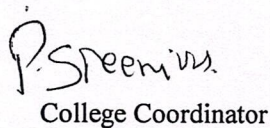 P. Sreenivas.
College Coordinator